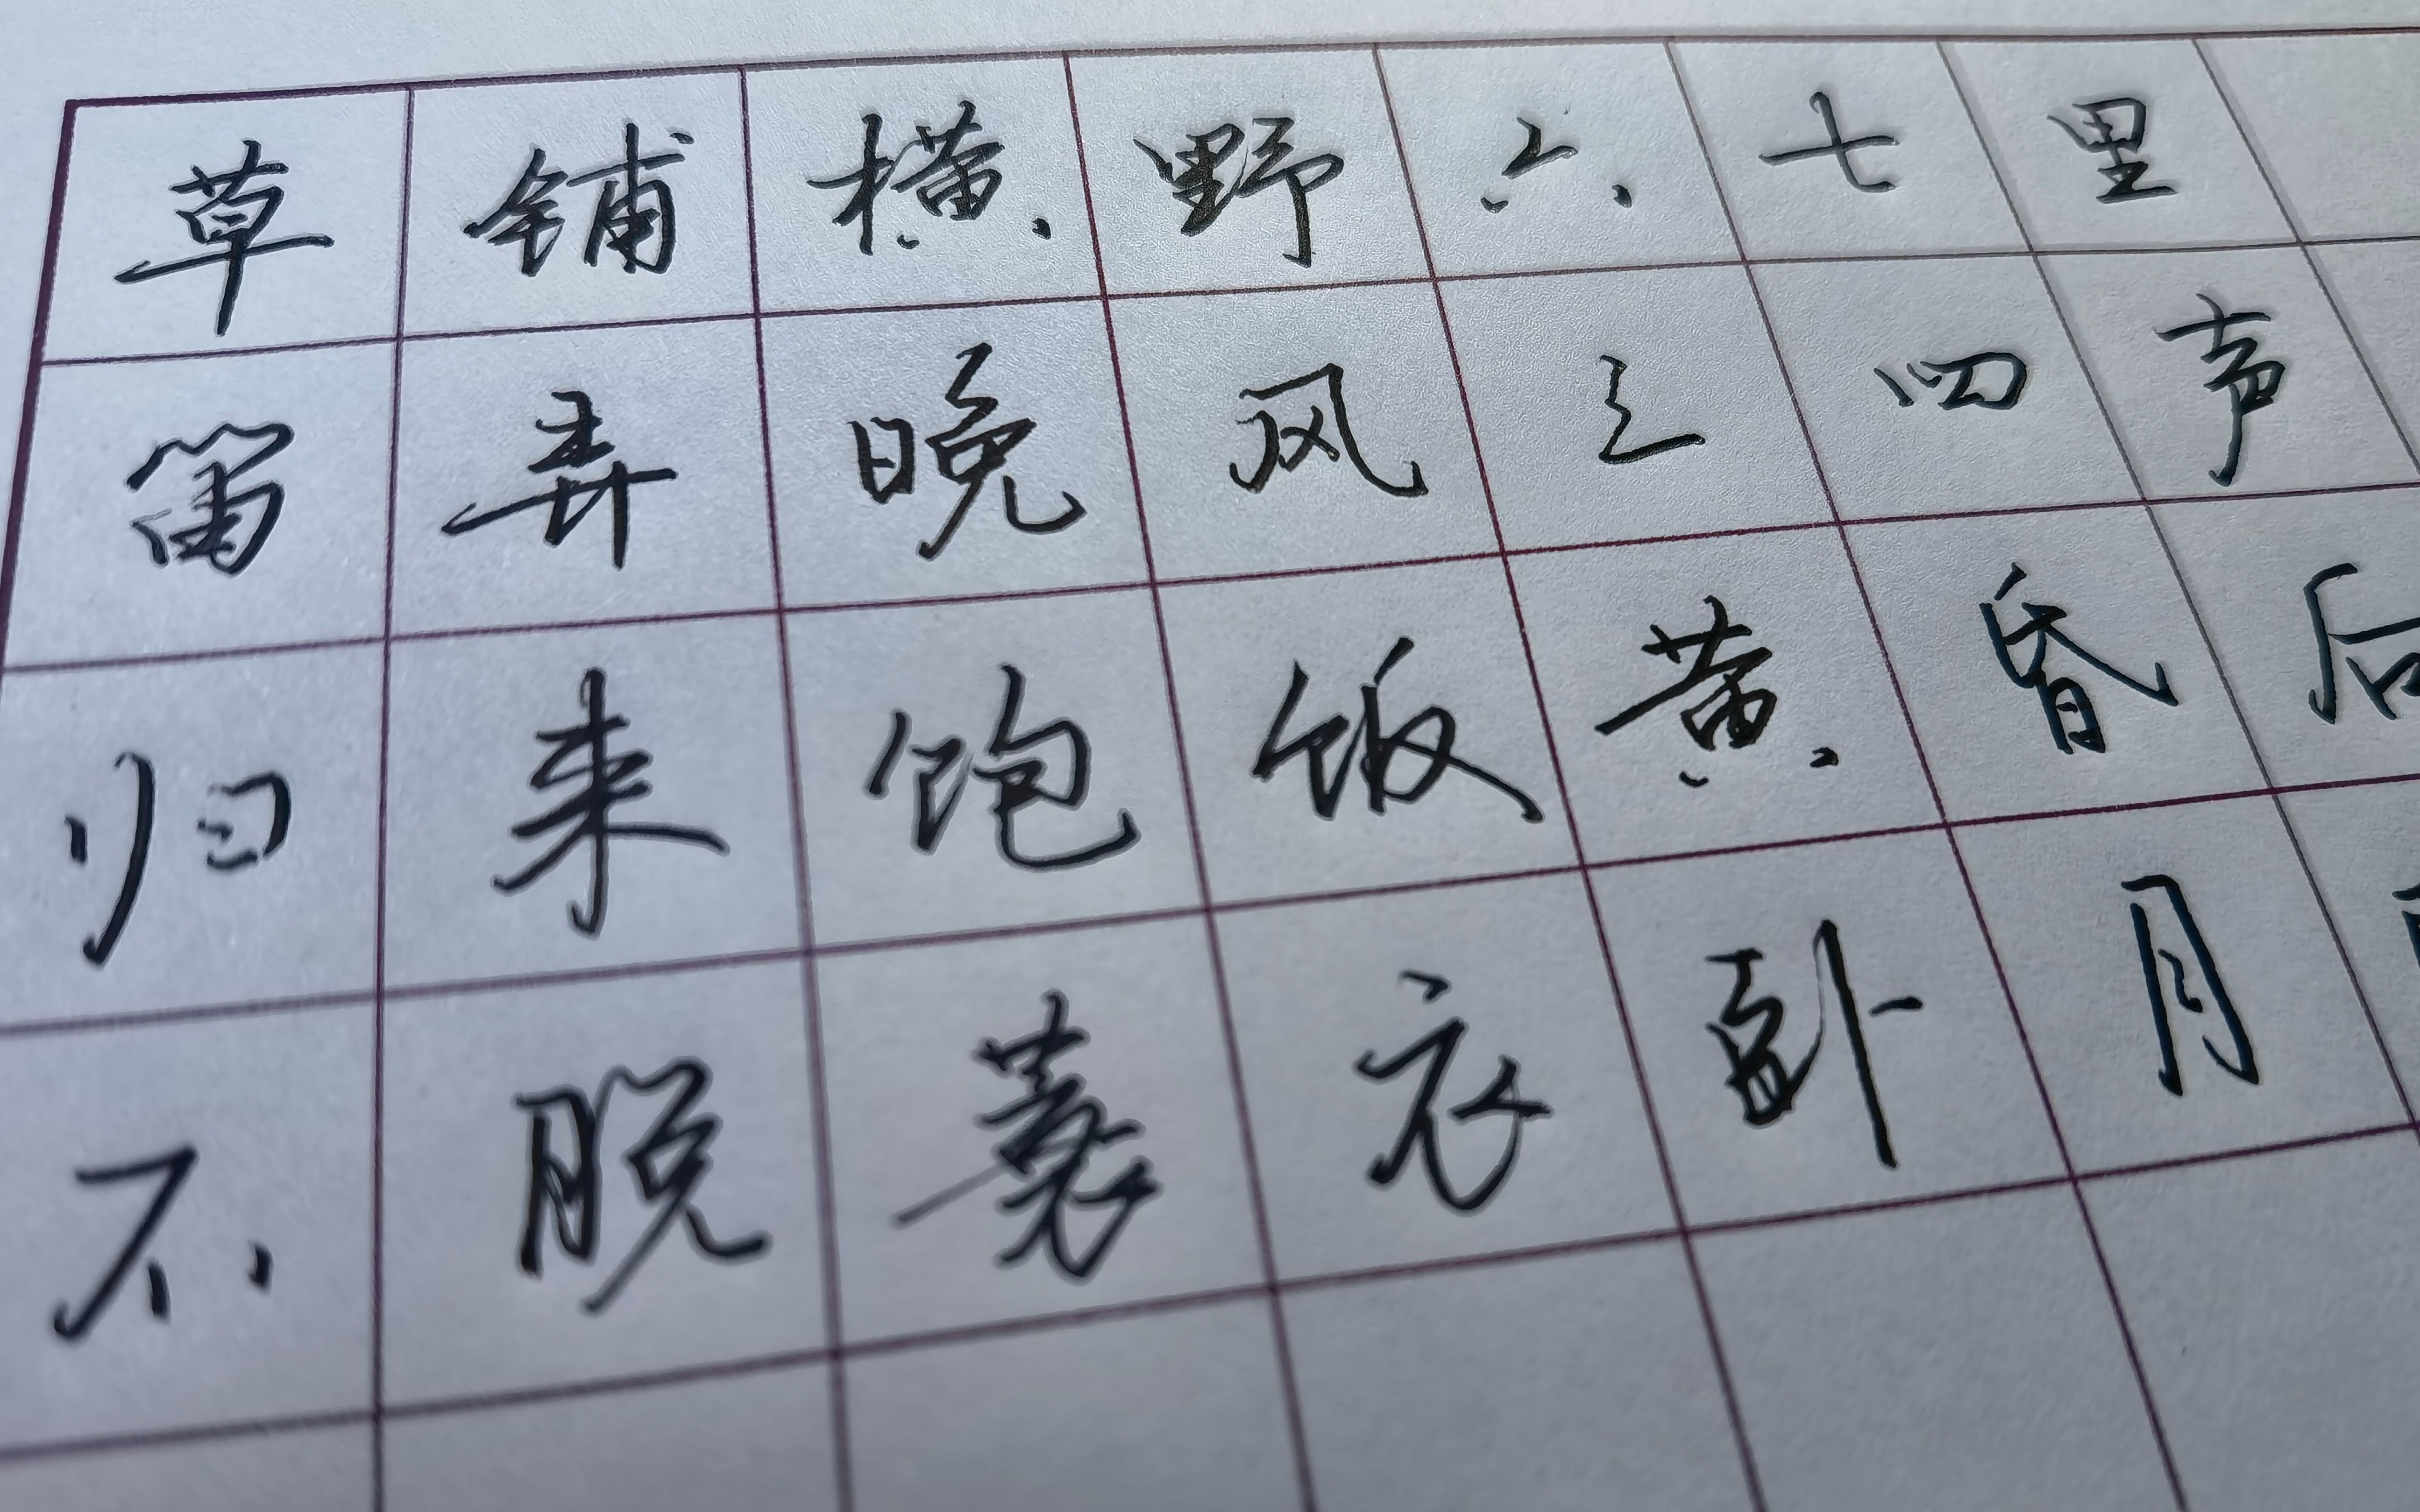 草铺横野六七里
笛弄晚风三四声
归来饱饭黄昏后
不脱蓑衣卧月